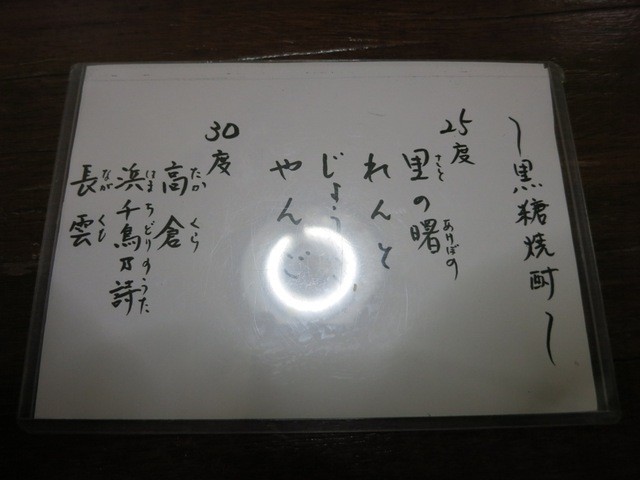 〜黒糖焼酎〜
25度
さと あけぼの
里の曙
れんと
じょう
やんご
30度
たか くら
高倉
はまちどりのうた
浜千鳥乃詩
ながくも
長雲